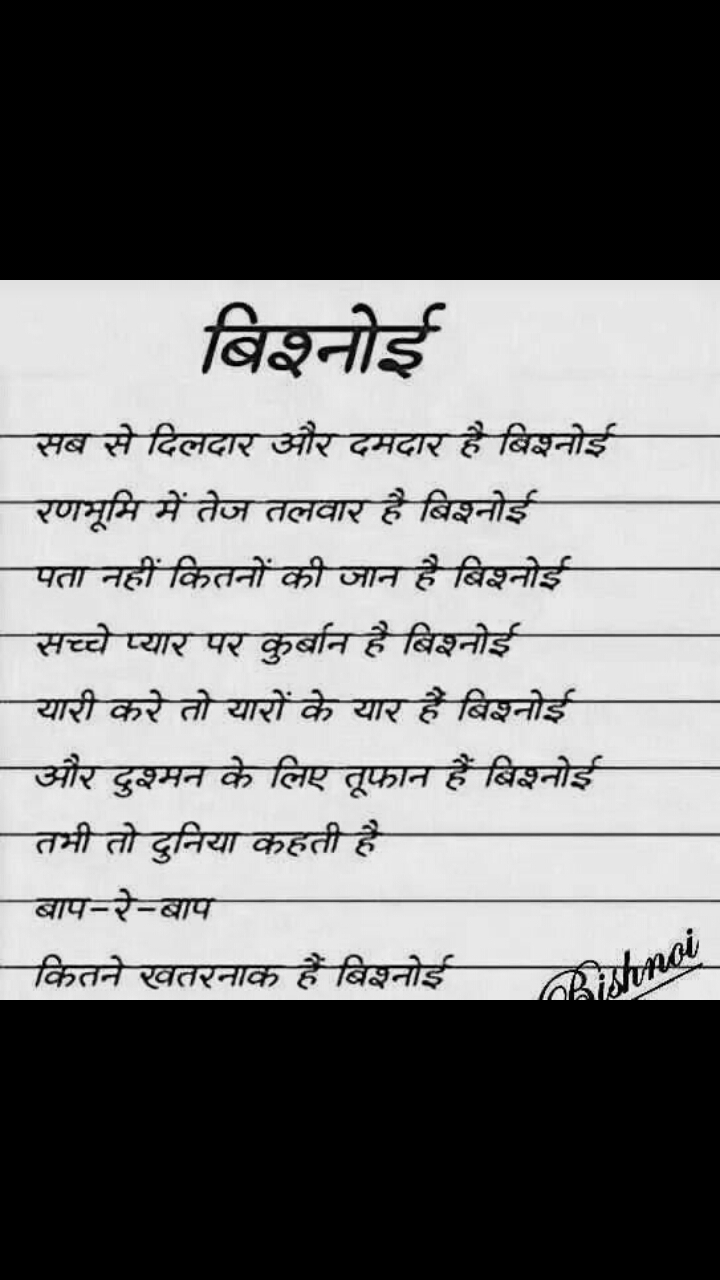 बिश्नोई
सब से दिलदार और दमदार है बिश्नोई
रणभूमि में तेज तलवार है बिश्नोई
पता नहीं कितनों की जान है बिश्नोई
सच्चे प्यार पर कुर्बान है बिश्नोई
यारी करे तो यारों के यार हैं बिश्नोई
और दुश्मन के लिए तूफान हैं बिश्नोई
तभी तो दुनिया कहती है
बाप-रे-बाप
कितने खतरनाक हैं बिश्नोई
Bishnoi